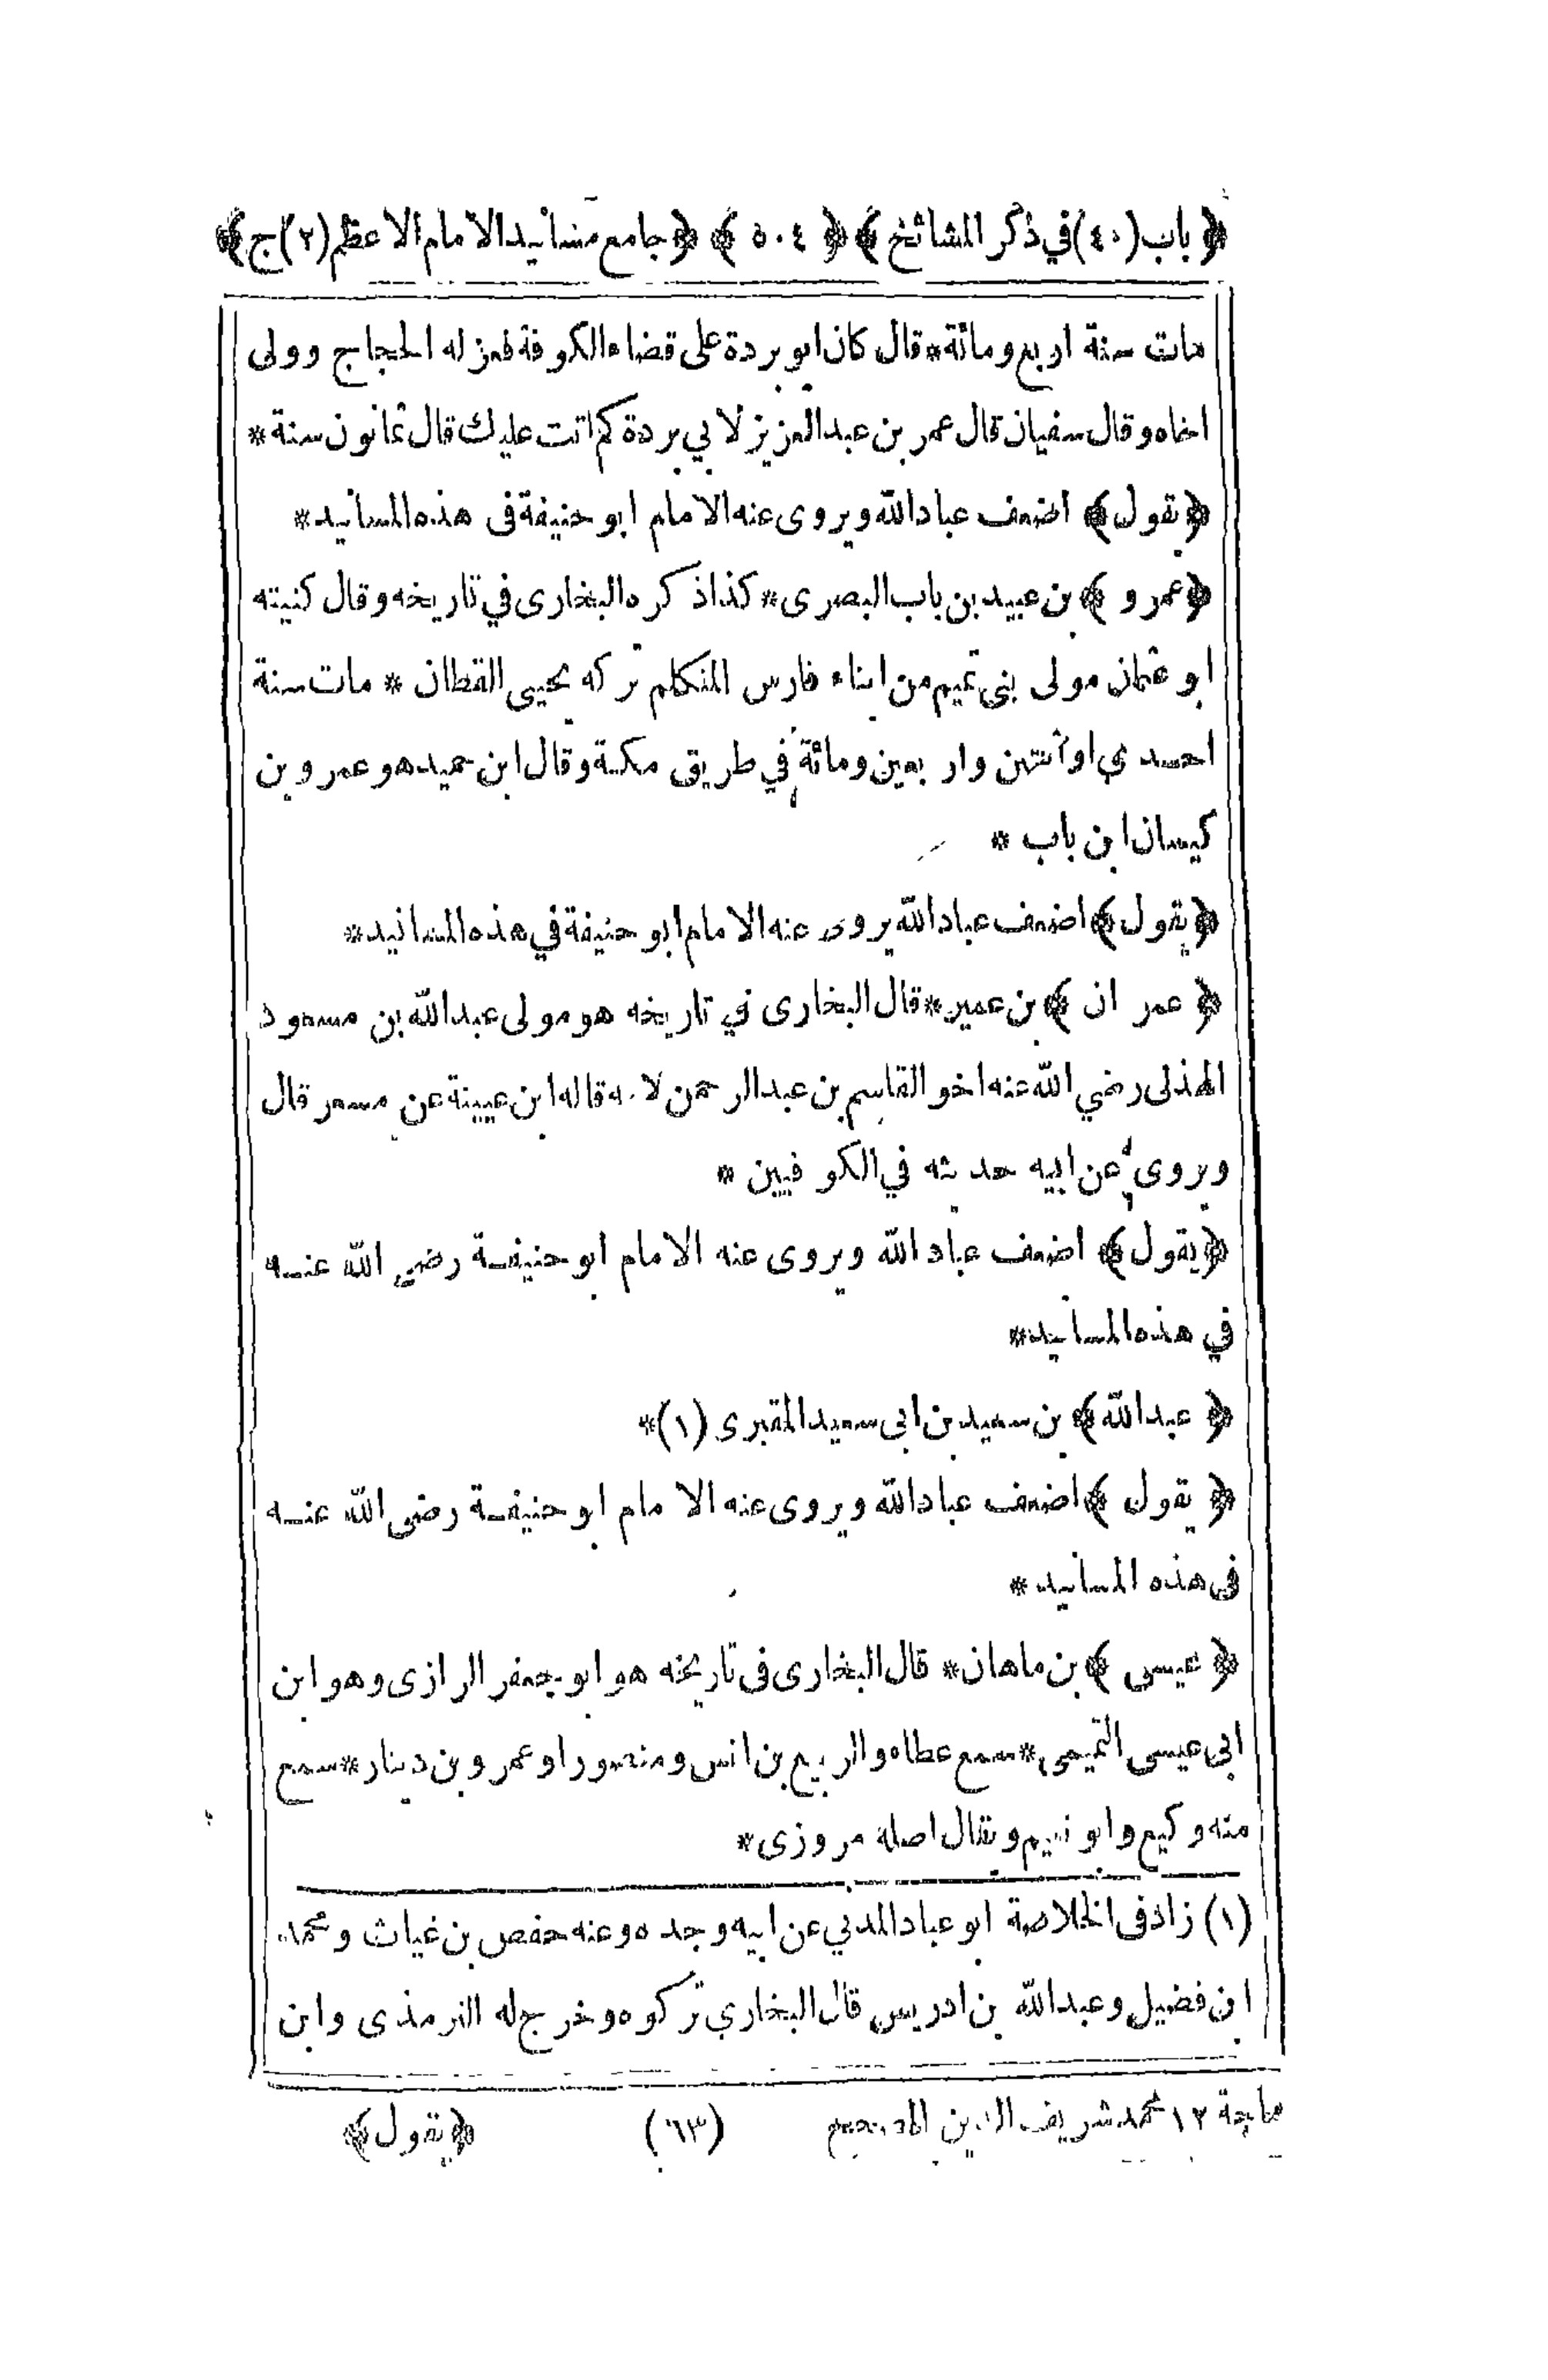 ﴿باب (٤٠) في ذكر المشائخ﴾ ﴿٥٠٤﴾ ﴿جامع مسانيد الامام الاعظم (٢) ج﴾
مات سنة اربع ومائة * قال كان ابو بردة على قضاء الكوفة فعزله الحجاج وولى
اخاه وقال سفيان قال عمر بن عبد العزيز لابي بردة كم اتت عليك قال ثمانون سنة *
﴿يقول﴾ اضعف عباد الله ويروى عنه الامام ابو حنيفة فى هذه المسانيد *
﴿عمرو﴾ بن عبيد بن باب البصرى * كذا ذكره البخارى في تاريخه وقال كنيته
ابو عثمان مولى بنى تميم من ابناء فارس المتكلم تركه يحيى القطان * مات سنة
احدى او اثنتين واربعين ومائة في طريق مكة وقال ابن حميد هو عمرو بن
كيسان ابن باب *
﴿يقول﴾ اضعف عباد الله يروى عنه الامام ابو حنيفة في هذه المسانيد *
﴿عمران﴾ بن عمير * قال البخارى في تاريخه هو مولى عبد الله بن مسعود
الهذلى رضي الله عنه اخو القاسم بن عبد الرحمن لامه قاله ابن عيينة عن مسعر قال
ويروى عن ابيه حديثه في الكوفيين *
﴿يقول﴾ اضعف عباد الله ويروى عنه الامام ابو حنيفة رضي الله عنه
في هذه المسانيد *
﴿عبد الله﴾ بن سعيد بن ابى سعيد المقبرى (١) *
﴿يقول﴾ اضعف عباد الله ويروى عنه الامام ابو حنيفة رضى الله عنه
فى هذه المسانيد *
﴿عيسى﴾ بن ماهان * قال البخارى فى تاريخه هو ابو جعفر الرازى وهو ابن
ابى عيسى التميمى * سمع عطاء والربيع بن انس ومنصورا وعمرو بن دينار * سمع
منه وكيع وابو نعيم ويقال اصله مروزى *
(١) زاد فى الخلاصة ابو عباد المدني عن ابيه وجده وعنه حفص بن غياث ومحمد
ابن فضيل وعبد الله بن ادريس قال البخاري تركوه وخرج له الترمذى وابن
ماجة ١٢ محمد شريف الدين المصحح (٦٣) ﴿يقول﴾